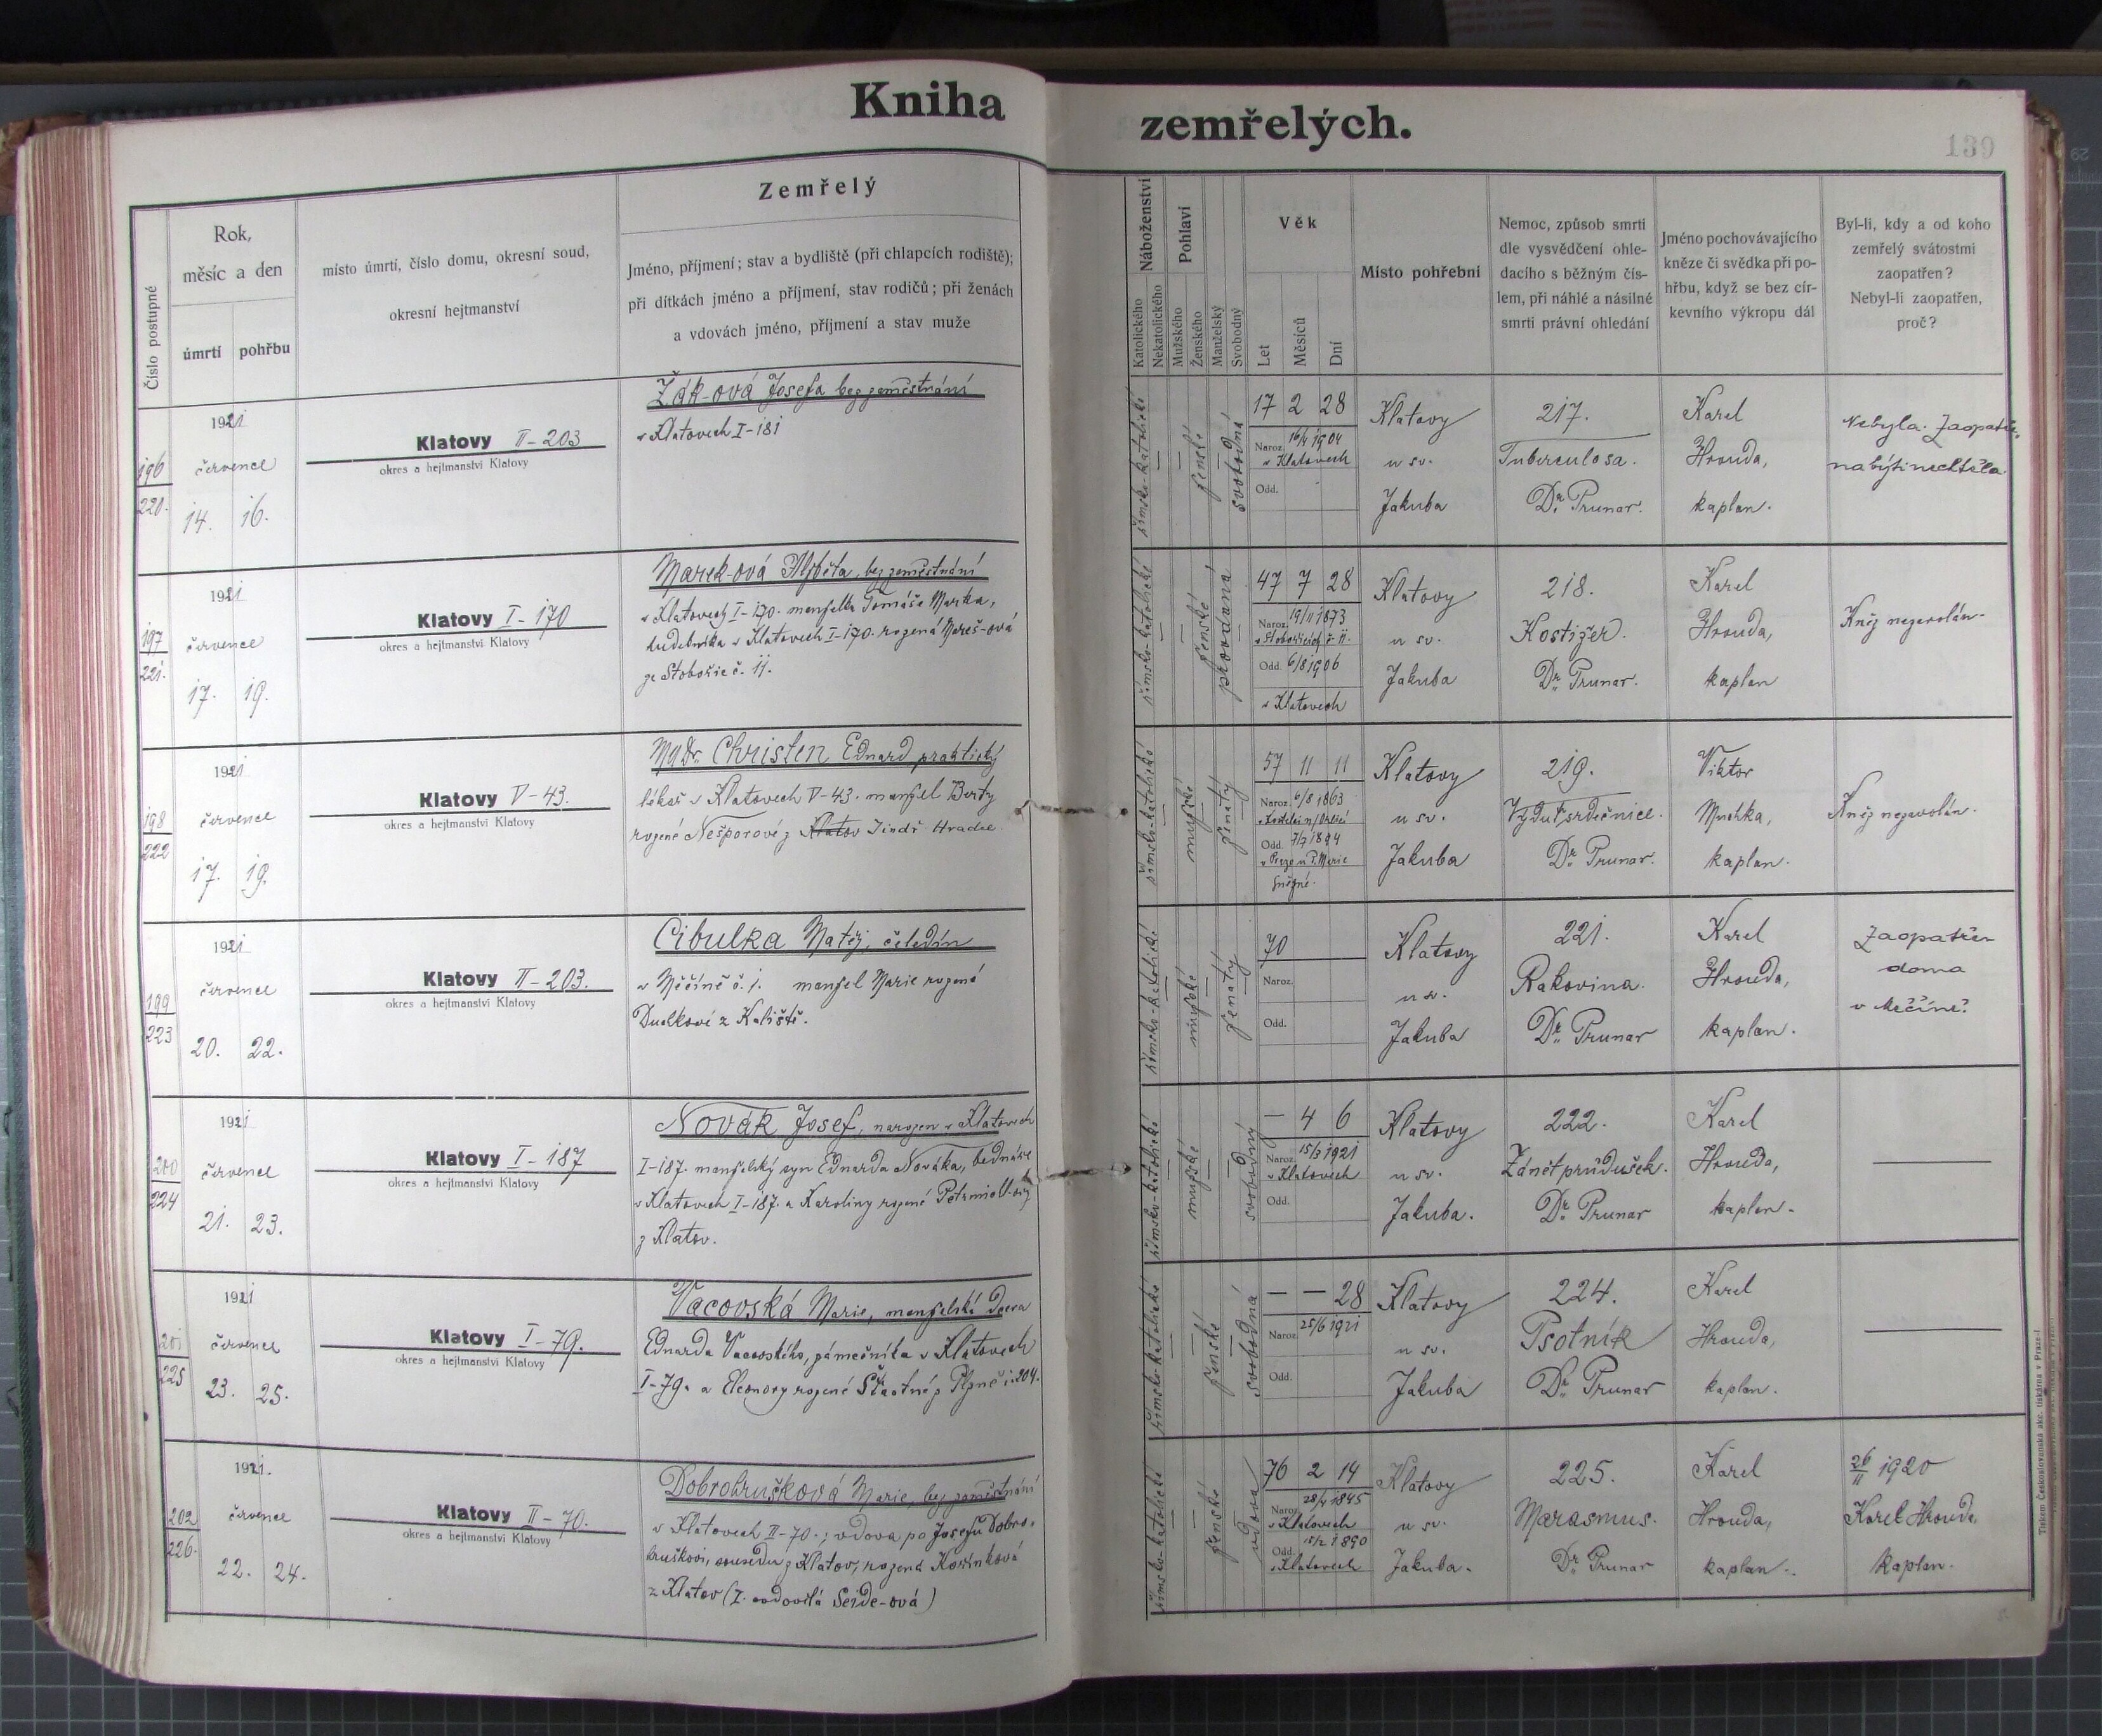 Kniha
zemřelých.
139
Číslo postupné
Rok,
měsíc a den
úmrtí
pohřbu
místo úmrtí, číslo domu, okresní soud,
okresní hejtmanství
Zemřelý
Jméno, příjmení; stav a bydliště (při chlapcích rodiště);
při dítkách jméno a příjmení, stav rodičů; při ženách
a vdovách jméno, příjmení a stav muže
Náboženství
Katolického
Nekatolického
Pohlaví
Mužského
Ženského
Manželský
Svobodný
Věk
Let
Měsíců
Dní
Místo pohřební
Nemoc, způsob smrti
dle vysvědčení ohle-
dacího s běžným čís-
lem, při náhlé a násilné
smrti právní ohledání
Jméno pochovávajícího
kněze či svědka při po-
hřbu, když se bez cír-
kevního výkropu dál
Byl-li, kdy a od koho
zemřelý svátostmi
zaopatřen?
Nebyl-li zaopatřen,
proč?
196
220.
1921
července
14. 16.
Klatovy II-203
okres a hejtmanství Klatovy
Žák-ová Josefa bez zaměstnání
v Klatovech I-181
římsko-katolické
ženské
svobodná
17 2 28
Naroz. 16/4 1904
v Klatovech
Odd.
Klatovy
u sv.
Jakuba
217.
Tuberculosa.
Dr. Prunar.
Karel
Hrouda,
kaplan.
Nebyla. Zaopatře-
na býti nechtěla.
197
221.
1921
července
17. 19.
Klatovy I-170
okres a hejtmanství Klatovy
Marek-ová Alžběta, bez zaměstnání
v Klatovech I-170. manželka Tomáše Marka,
v Klatovech I-170. rozená Mareš-ová
ze Stobořic č. 11.
římsko-katolické
ženské
provdaná
47 7 28
Naroz. 19/11 1873
v Stobořicích č. 11.
Odd. 6/8 1906
v Klatovech
Klatovy
u sv.
Jakuba
218.
Kostižer.
Dr. Prunar.
Karel
Hrouda,
kaplan
Kněz nezavolán.
198
222
1921
července
17. 19.
Klatovy V-43.
okres a hejtmanství Klatovy
MUDr. Christen Eduard praktický
lékař v Klatovech V-43. manžel Berty
rozené Nešporové z Klatov Jindř. Hradce.
římsko-katolické
mužské
ženatý
57 11 11
Naroz. 6/8 1863
v Kostelci n/Orlicí
Odd. 7/7 1894
v Praze u P. Marie
Sněžné.
Klatovy
u sv.
Jakuba
219.
Výduť srdečnice.
Dr. Prunar.
Viktor
kaplan.
Kněz nezavolán.
199
223
1921
července
20. 22.
Klatovy II-203.
okres a hejtmanství Klatovy
Cibulka Matěj, čeledín
v Měčíně č. 1. manžel Marie rozené
Duchkové z Kalištĕ.
římsko-katolické
mužské
ženatý
70
Naroz.
Odd.
Klatovy
u sv.
Jakuba
221.
Rakovina.
Dr. Prunar
Karel
Hrouda,
kaplan.
Zaopatřen
doma
v Měčíně?
200
224
1921
července
21. 23.
Klatovy I-187
okres a hejtmanství Klatovy
Novák Josef, narozen v Klatovech
I-187. manželský syn Eduarda Nováka, bednáře
v Klatovech I-187. a Karoliny rozené
z Klatov.
římsko-katolické
mužské
svobodný
— 4 6
Naroz. 15/3 1921
v Klatovech
Odd.
Klatovy
u sv.
Jakuba.
222.
Zánět průdušek.
Dr. Prunar
Karel
Hrouda,
kaplan.
201
225
1921
července
23. 25.
Klatovy I-79.
okres a hejtmanství Klatovy
Vacovská Marie, manželská dcera
Eduarda Vacovského, zámečníka v Klatovech
I-79. a Eleonory rozené Šťastné z Plzně č. 204.
římsko-katolické
ženské
svobodná
— — 28
Naroz. 25/6 1921
Odd.
Klatovy
u sv.
Jakuba
224.
Psotník
Dr. Prunar
Karel
Hrouda,
kaplan.
202
226.
1921.
července
22. 24.
Klatovy II-70.
okres a hejtmanství Klatovy
Dobrohrušková Marie, bez zaměstnání
v Klatovech II-70.; vdova po Josefu Dobro-
hruškovi, sousedu z Klatov, rozená Kořínková
z Klatov (I. ovdovělá Seidl-ová)
římsko-katolické
ženské
vdova
76 2 14
Naroz. 28/4 1845
v Klatovech
Odd. 15/2 1890
v Klatovech
Klatovy
u sv.
Jakuba.
225.
Marasmus.
Dr. Prunar
Karel
Hrouda,
kaplan.
26/11 1920
Karel Hrouda,
kaplan.
Tiskem Československá akc. tiskárna v Praze-I